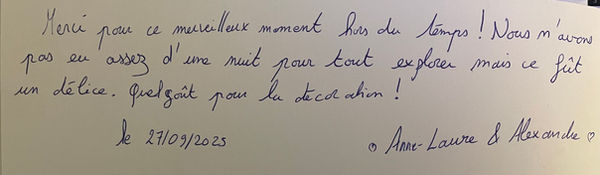 Merci pour ce merveilleux moment hors du temps ! Nous n'avons
pas eu assez d'une nuit pour tout explorer mais ce fût
un délice. Quel goût pour la décoration !
le 27/09/2025
Anne-Laure & Alexandre ♡